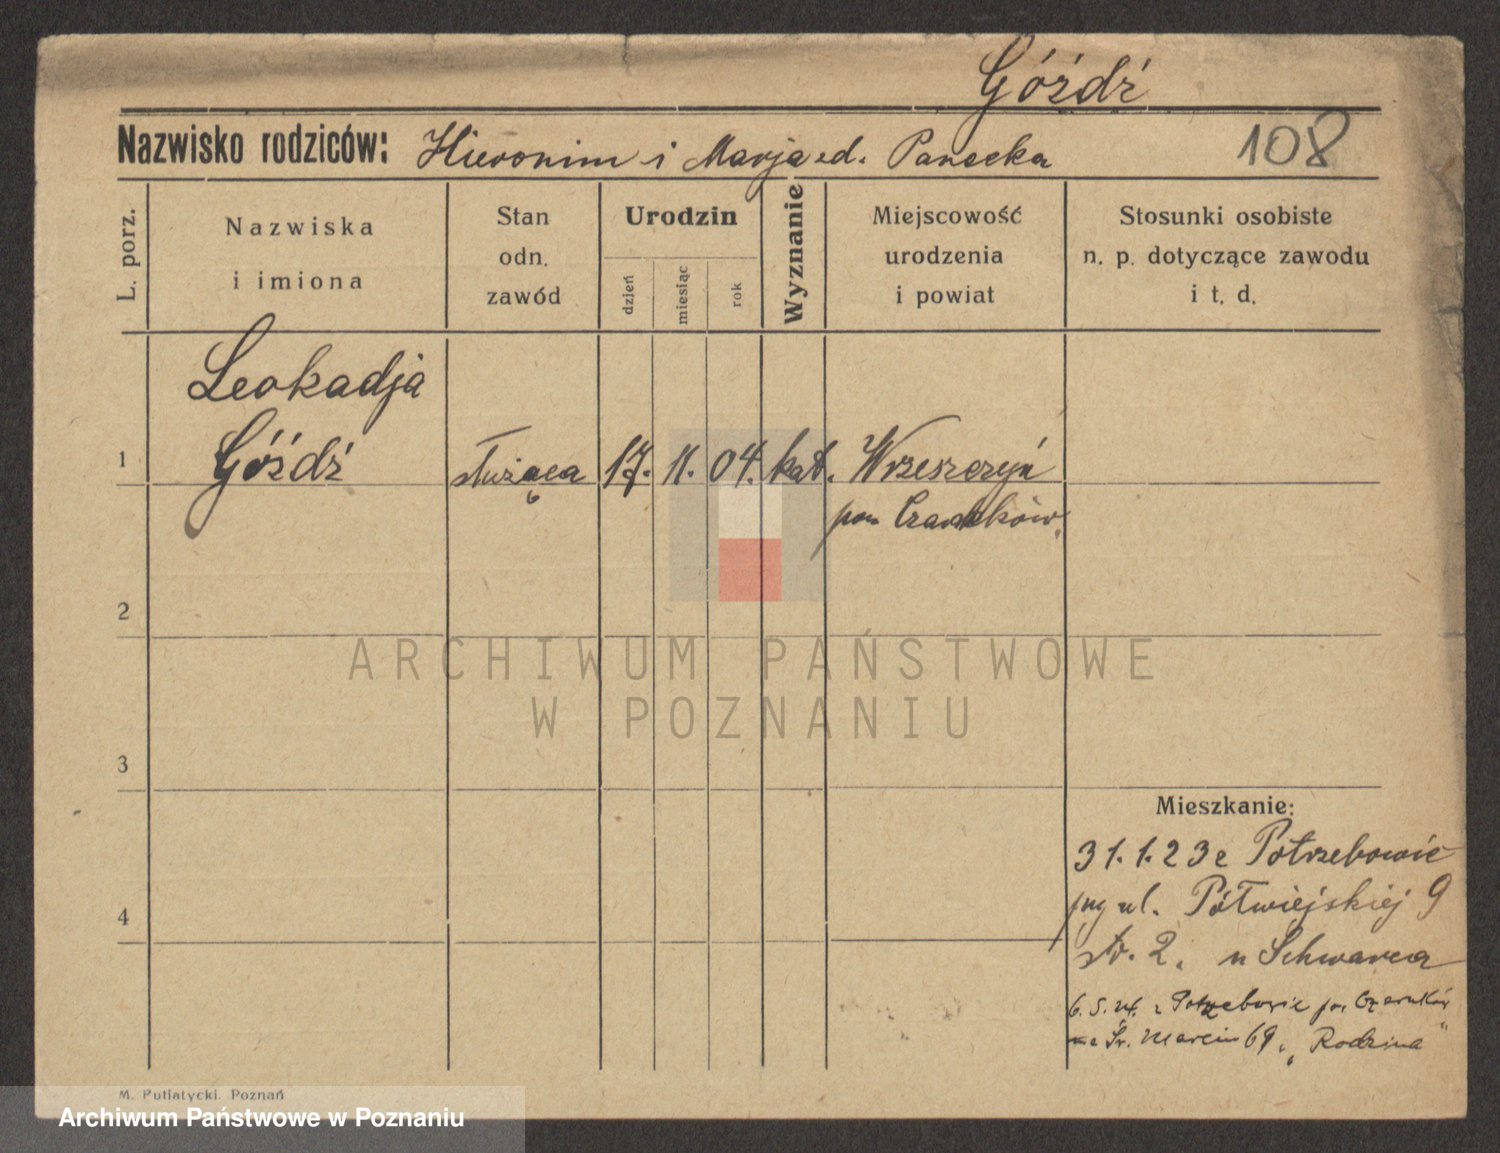 Góźdź
Nazwisko rodziców: Hieronim i Marja zd. Panecka
108
L. porz.
Nazwiska
i imiona
Stan
odn.
zawód
Urodzin
dzień
miesiąc
rok
Wyznanie
Miejscowość
urodzenia
i powiat
Stosunki osobiste
n. p. dotyczące zawodu
i t. d.
Leokadja
1 Góźdź służąca 17. 11. 04. kat. Wrzeszczyń
pow Czarnków.
2
3
4
Mieszkanie:
31.1.23 z Potrzebowic
ul. Półwiejskiej 9
str. 2. u Schwarca
6. 5. 24. z Potrzebowic pow. Czarnków
Św. Marcin 69. "Rodzina"
M. Putiatycki. Poznań
ARCHIWUM PAŃSTWOWE
W POZNANIU
Archiwum Państwowe w Poznaniu